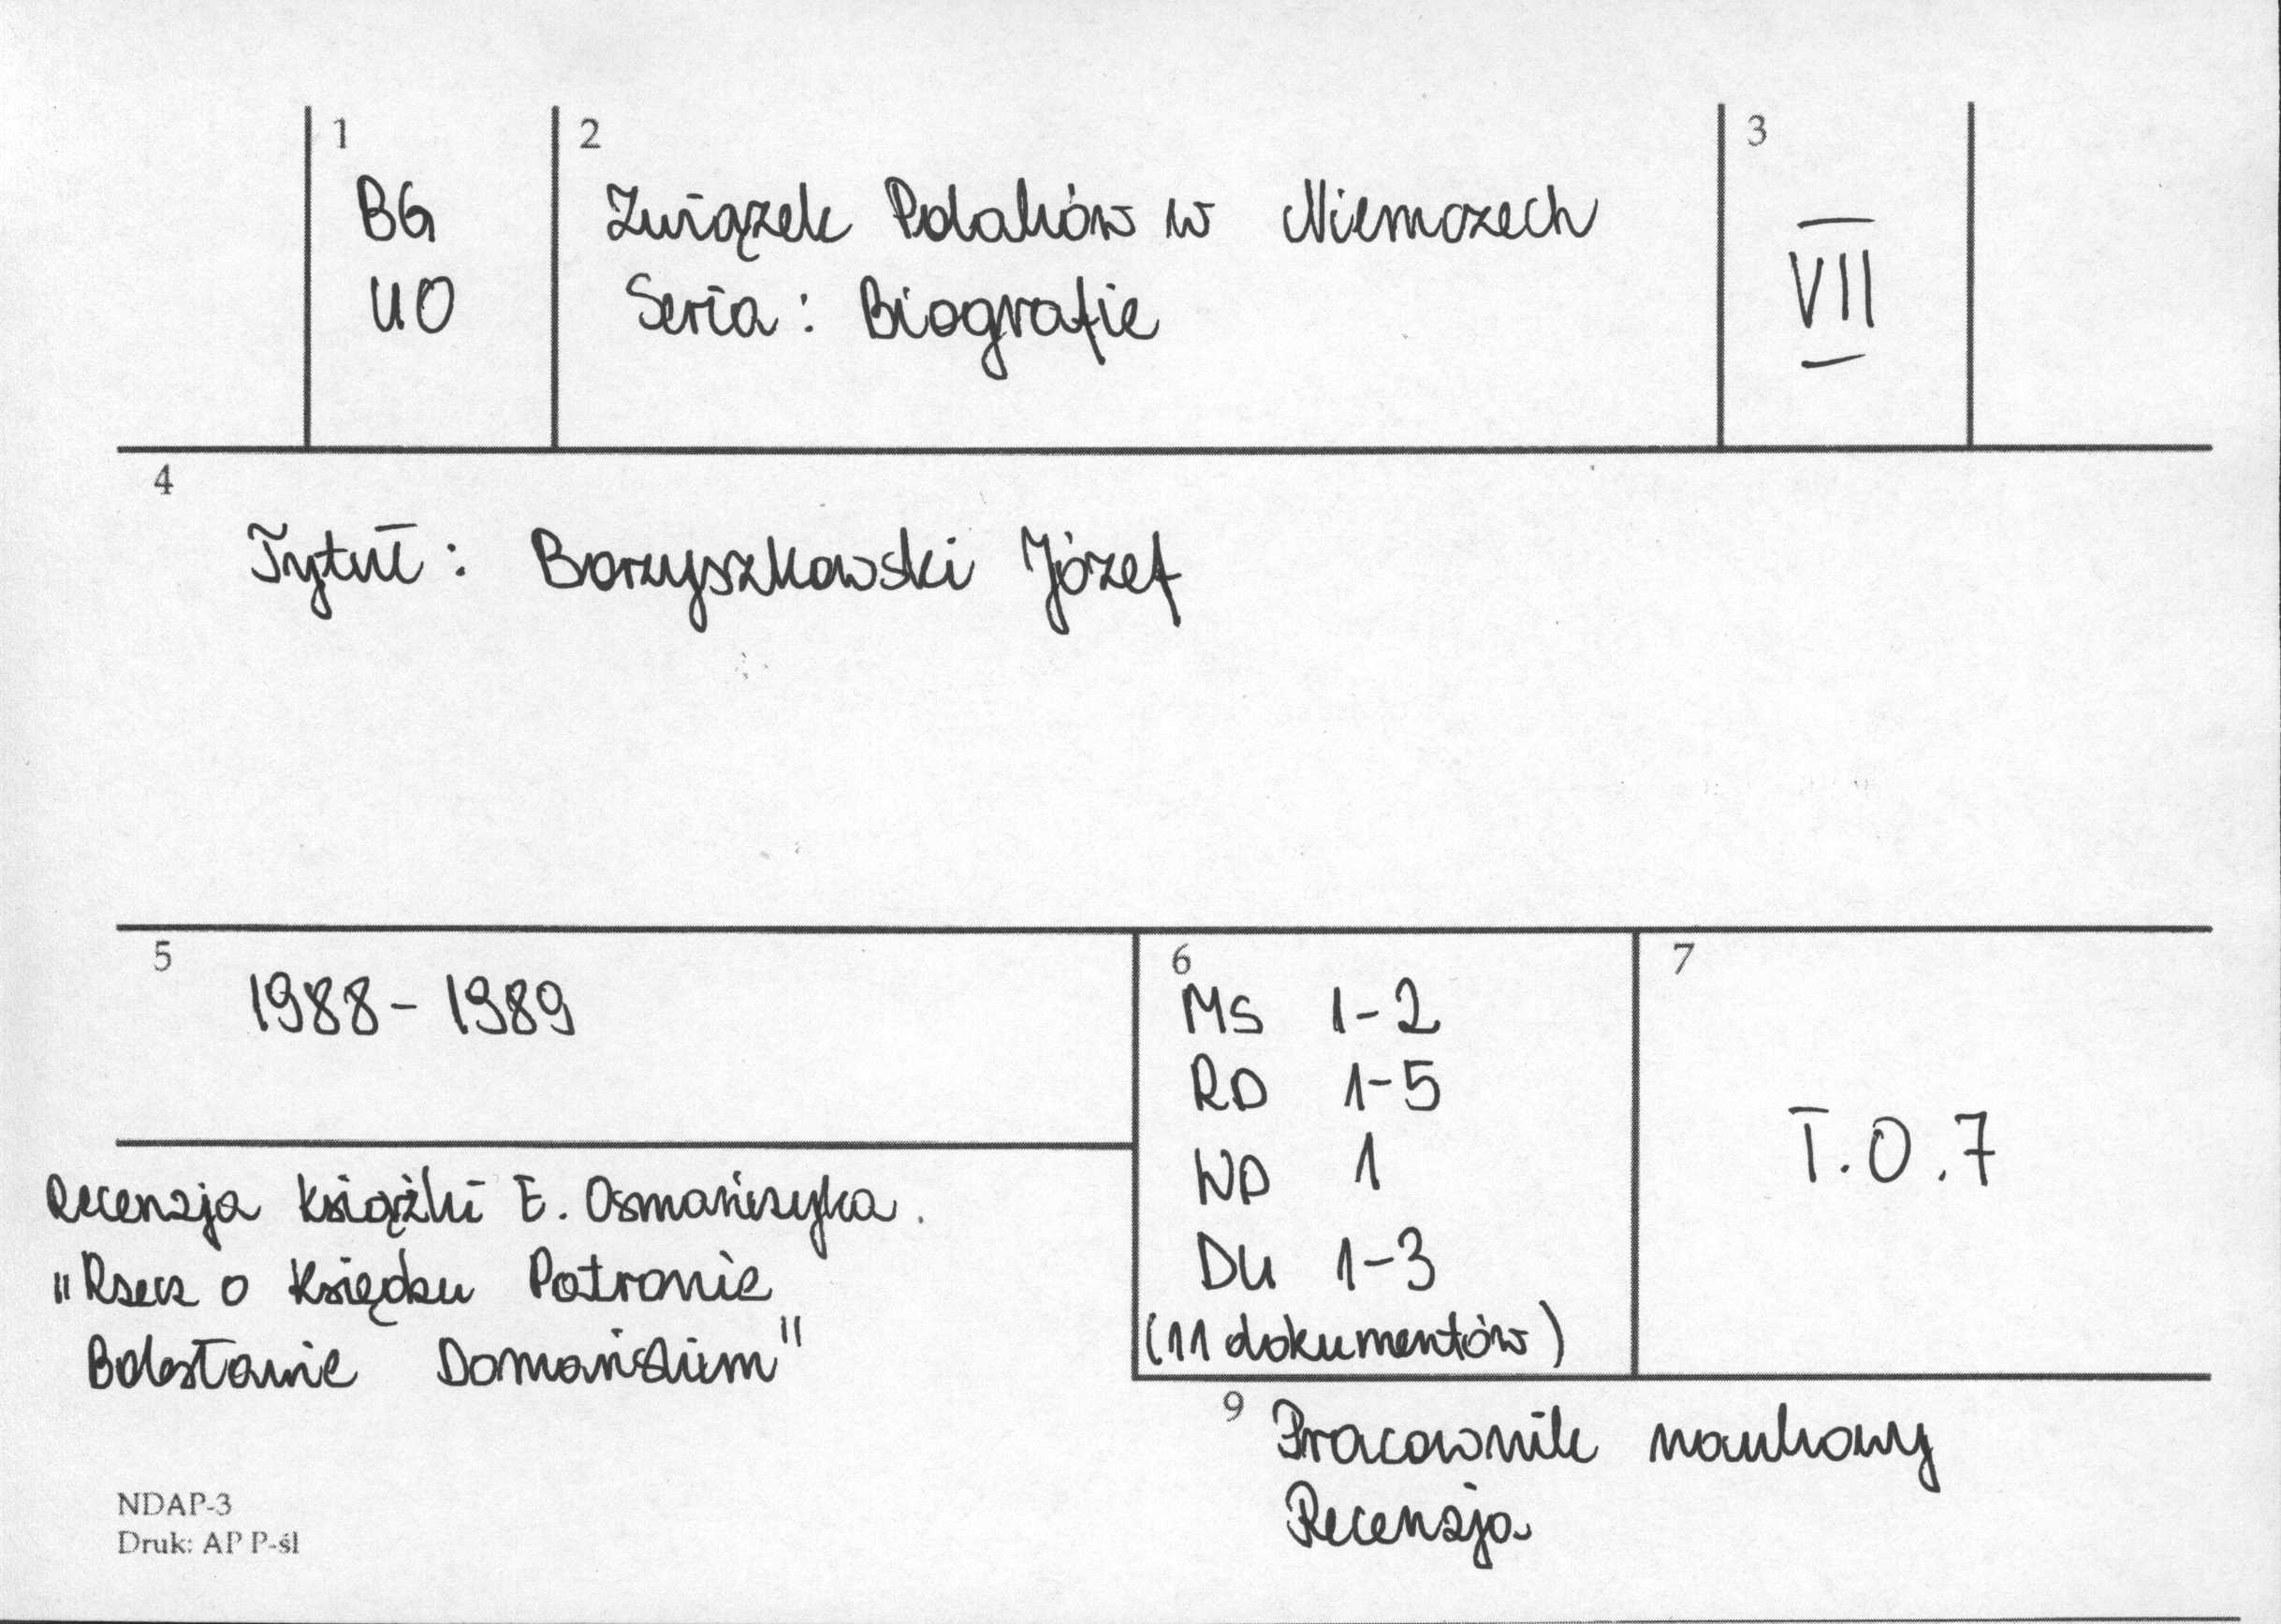 1
BG
UO
2
Związek Polaków w Niemczech
Seria: Biografie
3
VII
4
Tytuł: Borzyszkowski Józef
5
1988-1989
6
MS 1-2
RD 1-5
WD 1
DU 1-3
(11 dokumentów)
7
T.O.7
Recenzja książki E. Osmańczyka.
"Rzecz o Księdzu Patronie
Bolesławie Domańskim"
9
Pracownik naukowy
Recenzja
NDAP-3
Druk: AP P-śl